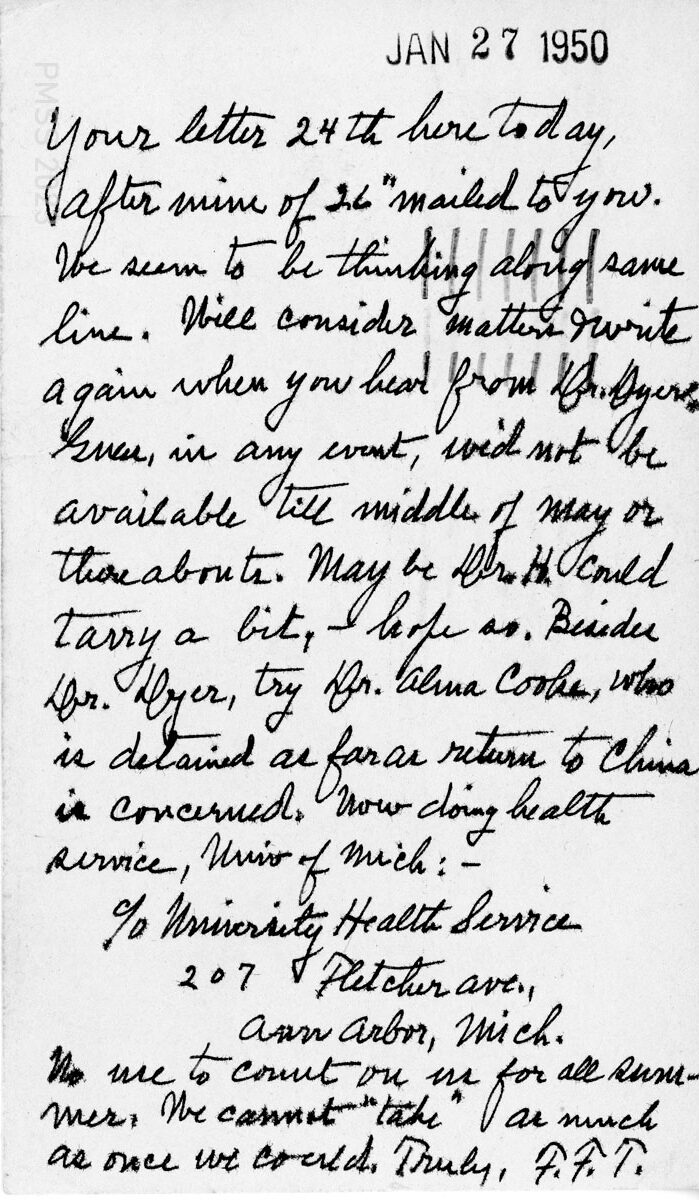 JAN 27 1950
PMSS 2023
Your letter 24th here today,
after mine of 26" mailed to you.
We seem to be thinking along same
line. Will consider matters & write
again when you hear from Dr. Dyer.
Guess, in any event, we'd not be
available till middle of May or
thereabouts. May be Dr. H. could
tarry a bit, – hope so. Besides
Dr. Dyer, try Dr. Alma Cooke, who
is detained as far as return to China
is concerned. Now doing health
service, Univ of Mich: –
c/o University Health Service
207 Fletcher ave.,
Ann Arbor, Mich.
No use to count on us for all sum-
mer. We cannot "take" as much
as once we could. Truly, F.F.T.